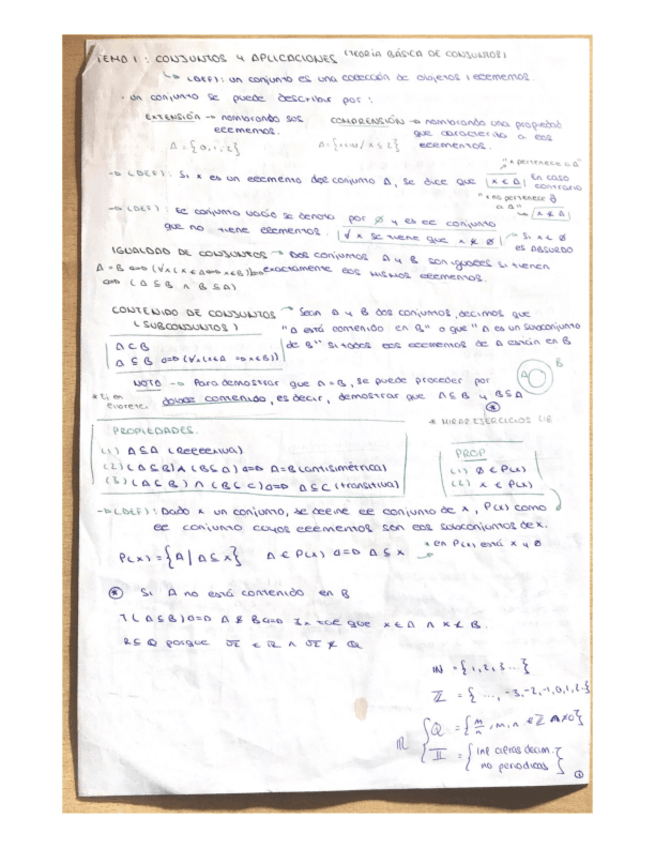 TEMA 1: CONJUNTOS Y APLICACIONES (TEORÍA BÁSICA DE CONJUNTOS)
↳ (DEF): un conjunto es una colección de objetos, elementos.
· un conjunto se puede describir por:
EXTENSIÓN → nombrando sus elementos.
A = {0,1,2}
COMPRENSIÓN → nombrando una propiedad que caracteriza a los elementos.
"x pertenece a A"
→ (DEF): Si x es un elemento del conjunto A, se dice que x ∈ A. En caso contrario
"x no pertenece a A" → x ∉ A
→ (DEF): El conjunto vacío se denota por ∅ y es el conjunto
que no tiene elementos. ∀x se tiene que x ∉ ∅ Si x ∈ ∅ es ABSURDO
IGUALDAD DE CONJUNTOS → Dos conjuntos A y B son iguales si tienen
exactamente los mismos elementos.
A = B ⟺ (∀x (x ∈ A ⟺ x ∈ B))
⟺ (A ⊆ B ∧ B ⊆ A)
CONTENIDO DE CONJUNTOS → Sean A y B dos conjuntos, decimos que
(SUBCONJUNTOS) "A está contenido en B" o que "A es un subconjunto
de B" si todos los elementos de A están en B
A ⊂ B
A ⊆ B ⟺ (∀x (x ∈ A ⟹ x ∈ B))
A B
NOTA → Para demostrar que A = B, se puede proceder por
doble contenido, es decir, demostrar que A ⊆ B y B ⊆ A
* MIRAR EJERCICIOS
PROPIEDADES.
(1) A ⊆ A (Reflexiva)
(2) (A ⊆ B) ∧ (B ⊆ A) ⟹ A = B (antisimétrica)
(3) (A ⊆ B) ∧ (B ⊆ C) ⟹ A ⊆ C (transitiva)
PROP
(1) ∅ ∈ P(x)
(2) x ∈ P(x)
→ (DEF): Dado x un conjunto, se define el conjunto de x, P(x) como
el conjunto cuyos elementos son los subconjuntos de x.
P(x) = {A | A ⊆ x} A ∈ P(x) ⟺ A ⊆ x
* en P(x) está x y ∅
⊛ Si A no está contenido en B
¬(A ⊆ B) ⟺ A ⊈ B ⟺ ∃x tal que x ∈ A ∧ x ∉ B.
porque √2 ∈ ℝ ∧ √2 ∉ ℚ
ℕ = {1,2,3...}
ℤ = {..., -3,-2,-1,0,1,2..}
ℝ { ℚ = {m/n, m,n ∈ ℤ ∧ n≠0}
𝕀 = {inf cifras decim. no periódicas}
①